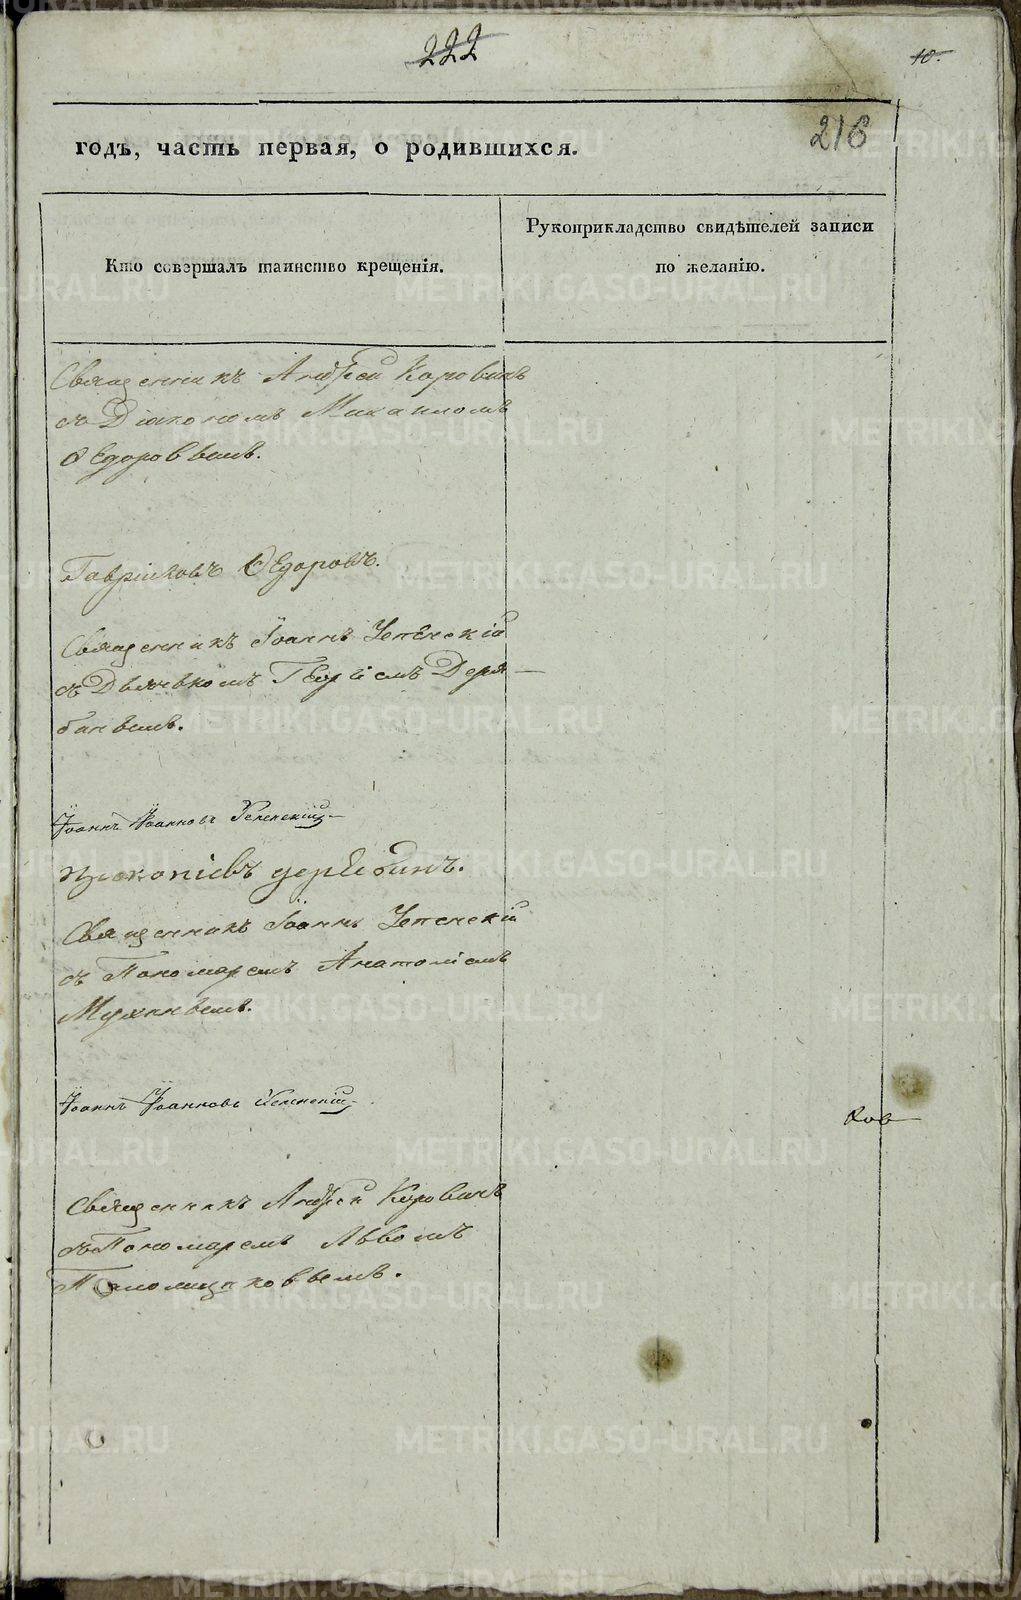 222
10.
216
годъ, часть первая, о родившихся.
Кто совершалъ таинство крещенія.
Рукоприкладство свидѣтелей записи
по желанію.
Священникъ Андрей Коровинъ
съ Діакономъ Михаиломъ
Ѳедоровымъ.
Гавріиловъ Ѳедоровъ.
Священникъ Іоаннъ Успенскій
съ Дьячкомъ Георгіемъ Деря-
бинымъ.
Іоаннъ Іоанновъ Успенскій
Прокопіевъ дерябинъ.
Священникъ Іоаннъ Успенскій
съ Пономаремъ Анатоліемъ
Мухинымъ.
Іоаннъ Іоанновъ Успенскій
ков
Священникъ Андрей Коровинъ
съ Пономаремъ Львомъ
METRIKI.GASO-URAL.RU